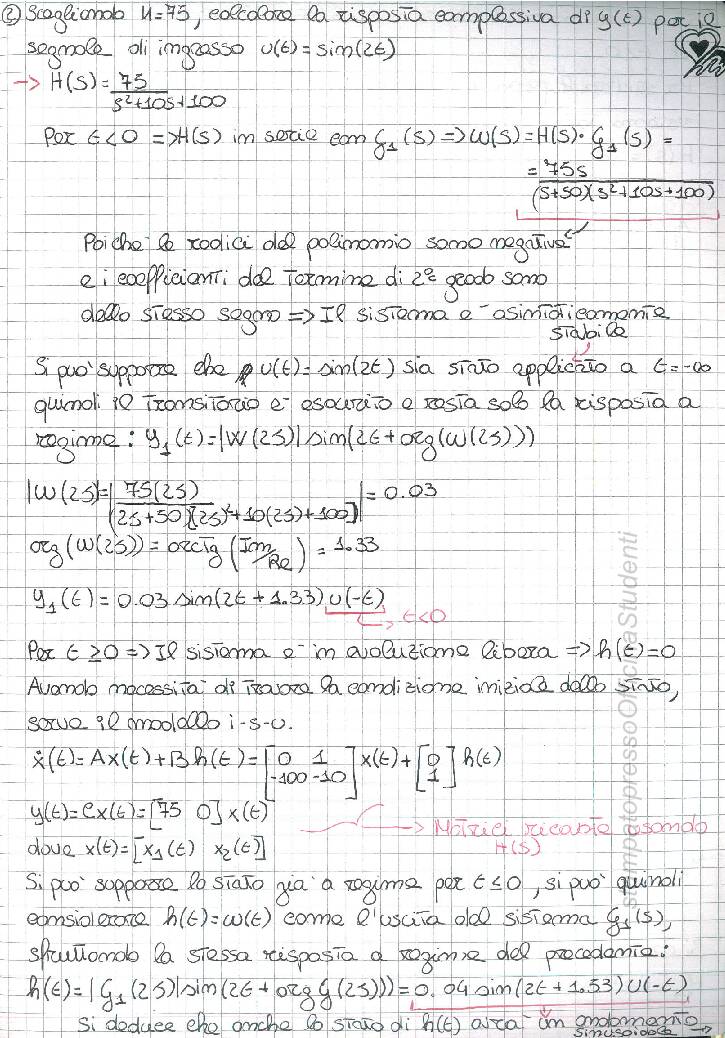 ② Scegliendo K=75, calcolare la risposta complessiva di y(t) per il
segnale di ingresso u(t)=sin(2t)
→ H(s)= 75 / s²+10s+100
Per t<0 ⇒ H(s) in serie con G₁(s) ⇒ W(s)=H(s)·G₁(s) =
= 75s / (s+50)(s²+10s+100)
Poiche' le radici del polinomio sono negative
e i coefficienti del termine di 2° grado sono
dello stesso segno ⇒ Il sistema e' asintoticamente
stabile
Si puo' supporre che u(t)=sin(2t) sia stato applicato a t=-∞
quindi il transitorio e' esaurito e resta solo la risposta a
regime: y₁(t)=|W(2j)|sin(2t+arg(W(2j)))
|W(2j)|=| 75(2j) / (2j+50)[(2j)²+10(2j)+100] |= 0.03
arg(W(2j))=arctg(Im/Re) = 1.33
y₁(t)=0.03 sin(2t+1.33)u(-t)
→ t<0
Per t≥0 ⇒ Il sistema e' in evoluzione libera ⇒ h(t)=0
Avendo necessita' di trovare la condizione iniziale dello stato,
serve il modello i-s-u.
ẋ(t)=Ax(t)+Bh(t)=[0 1 -100 -10]x(t)+[0 1]h(t)
y(t)=Cx(t)=[75 0]x(t)
→ Matrici ricavate usando
H(s)
dove x(t)=[x₁(t) x₂(t)]
Si puo' supporre lo stato gia' a regime per t≤0, si puo' quindi
considerare h(t)=w(t) come l'uscita del sistema G₁(s),
sfruttando la stessa risposta a regime del precedente:
h(t)=|G₁(2j)|sin(2t+arg G(2j)))=0.04 sin(2t+1.53)u(-t)
Si deduce che anche lo stato di h(t) avra' un andamento
sinusoidale →
stampatopressoOfficinaStudenti